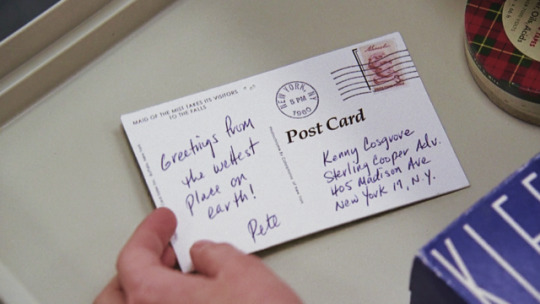 MAID OF THE MIST TAKES ITS VISITORS
TO THE FALLS
Greetings from
the wettest
place on
earth!
Pete
NEW YORK, NY
5 PM
1960
Post Card
Kenny Cosgrove
Sterling Cooper Adv.
405 Madison Ave
New York 17, N.Y.
KLEE